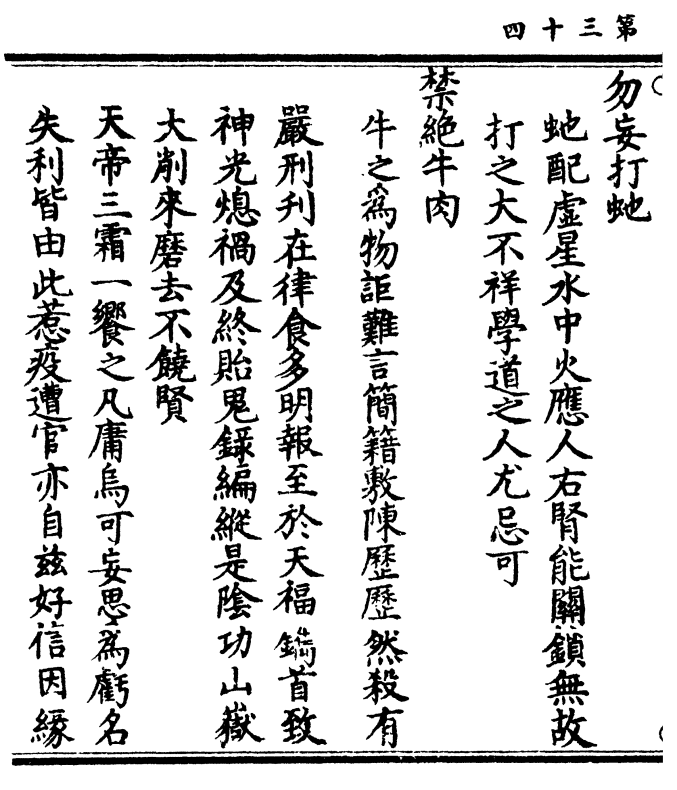 第三十四
勿妄打虵
虵配虛星水中火應人右腎能關鎖無故
打之大不祥學道之人尤忌可
禁絕牛肉
牛之爲物詎難言簡籍敷陳歷歷然殺有
嚴刑刋在律食多明報至於天福鐫首致
神光熄禍及終貽鬼錄編縱是陰功山嶽
大削來磨去不饒賢
天帝三霜一饗之凡庸烏可妄思爲虧名
失利皆由此惹疫遭官亦自玆好信因緣